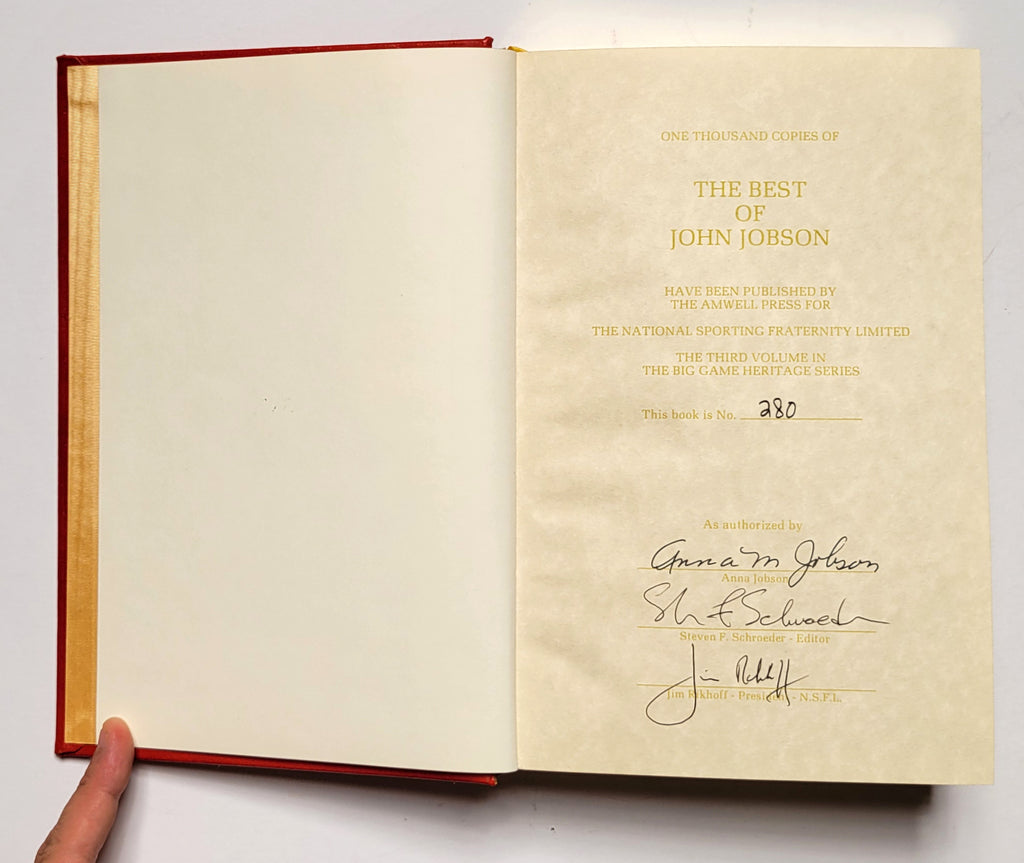 ONE THOUSAND COPIES OF
THE BEST
OF
JOHN JOBSON
HAVE BEEN PUBLISHED BY
THE AMWELL PRESS FOR
THE NATIONAL SPORTING FRATERNITY LIMITED
THE THIRD VOLUME IN
THE BIG GAME HERITAGE SERIES
This book is No. 280
As authorized by
Anna M Jobson
Anna Jobson
St F Schroeder
Steven F. Schroeder - Editor
Jim Rikhoff
Jim Rikhoff - President - N.S.F.L.